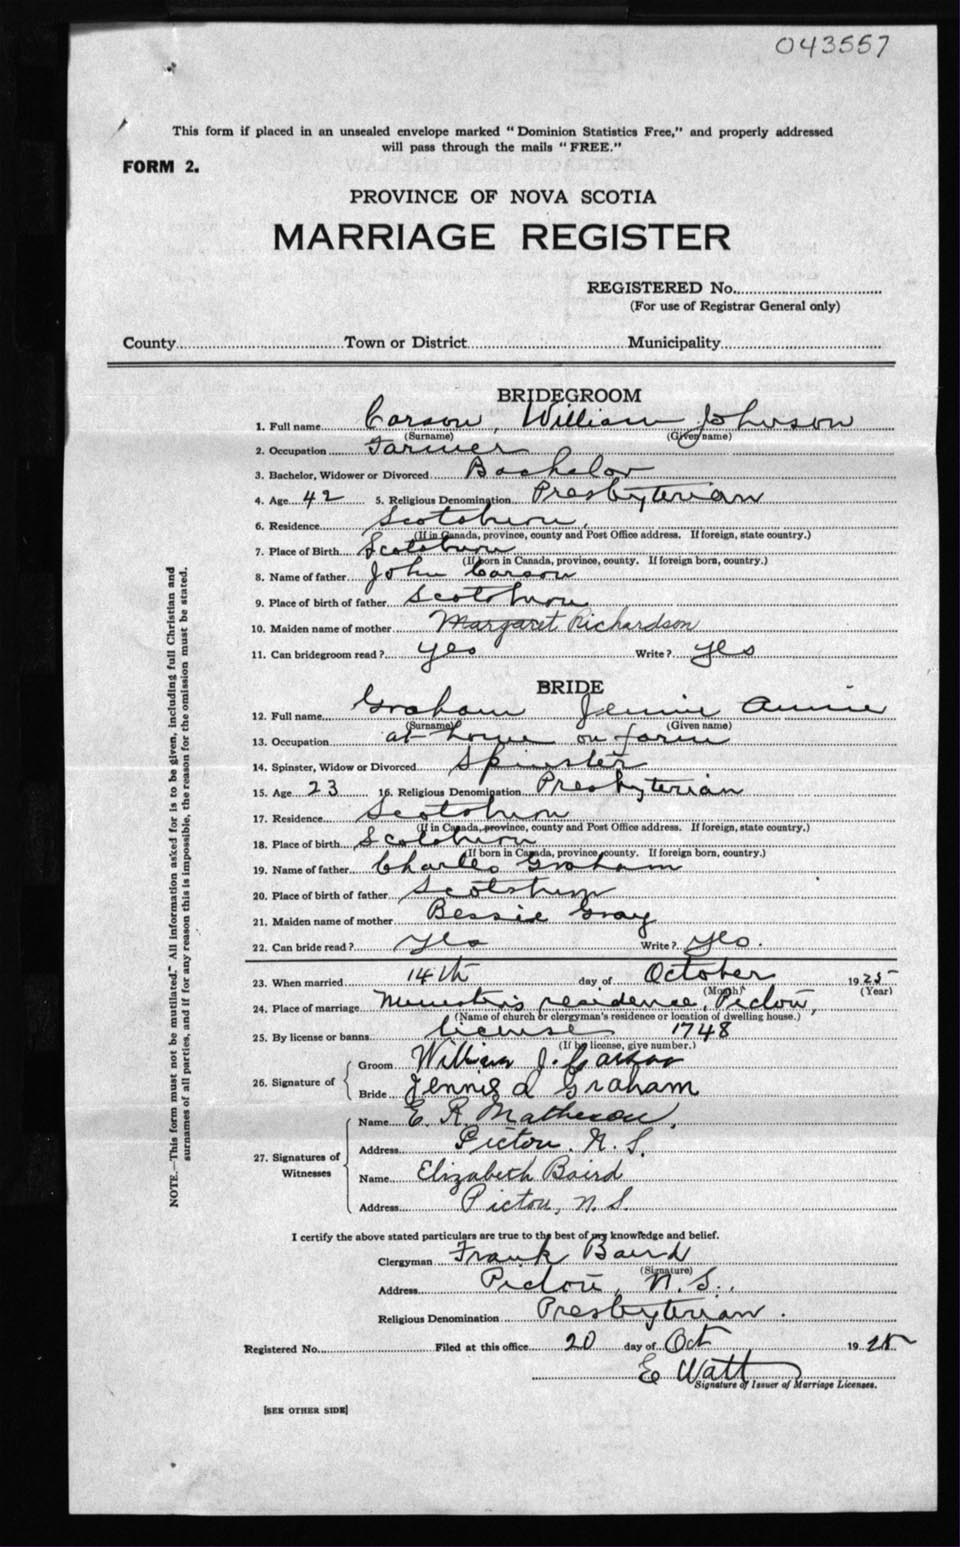 043557
This form if placed in an unsealed envelope marked “Dominion Statistics Free,” and properly addressed
will pass through the mails “FREE.”
FORM 2.
PROVINCE OF NOVA SCOTIA
MARRIAGE REGISTER
REGISTERED No.
(For use of Registrar General only)
County Town or District Municipality
BRIDEGROOM
1. Full name Carson, William Johnson
(Surname) (Given name)
2. Occupation Farmer
3. Bachelor, Widower or Divorced Bachelor
4. Age 42 5. Religious Denomination Presbyterian
6. Residence Scotsburn,
(If in Canada, province, county and Post Office address. If foreign, state country.)
7. Place of Birth Scotsburn
(If born in Canada, province, county. If foreign born, country.)
8. Name of father John Carson
9. Place of birth of father Scotsburn
10. Maiden name of mother Margaret Richardson
11. Can bridegroom read? yes Write? yes
BRIDE
12. Full name Graham Jennie Annie
(Surname) (Given name)
13. Occupation at home on farm
14. Spinster, Widow or Divorced Spinster
15. Age 23 16. Religious Denomination Presbyterian
17. Residence Scotsburn
(If in Canada, province, county and Post Office address. If foreign, state country.)
18. Place of birth Scotsburn
(If born in Canada, province, county. If foreign born, country.)
19. Name of father Charles Graham
20. Place of birth of father Scotsburn
21. Maiden name of mother Bessie Gray
22. Can bride read? yes Write? yes.
23. When married 14th day of October 1925
(Month) (Year)
24. Place of marriage Minister's residence, Pictou,
(Name of church or clergyman's residence or location of dwelling house.)
25. By license or banns license 1748
(If by license, give number.)
26. Signature of
Groom William J. Carson
Bride Jennie A Graham
27. Signatures of Witnesses
Name E. R. Matheson,
Address Pictou, N. S.
Name Elizabeth Baird
Address Pictou, N. S.
I certify the above stated particulars are true to the best of my knowledge and belief.
Clergyman Frank Baird
(Signature)
Address Pictou, N. S.,
Religious Denomination Presbyterian.
Registered No. Filed at this office 20 day of Oct 1925
E Watt
Signature of Issuer of Marriage Licenses.
[SEE OTHER SIDE]
NOTE.—This form must not be mutilated. All information asked for is to be given, including full Christian and
surnames of all parties, and if for any reason this is impossible, the reason for the omission must be stated.